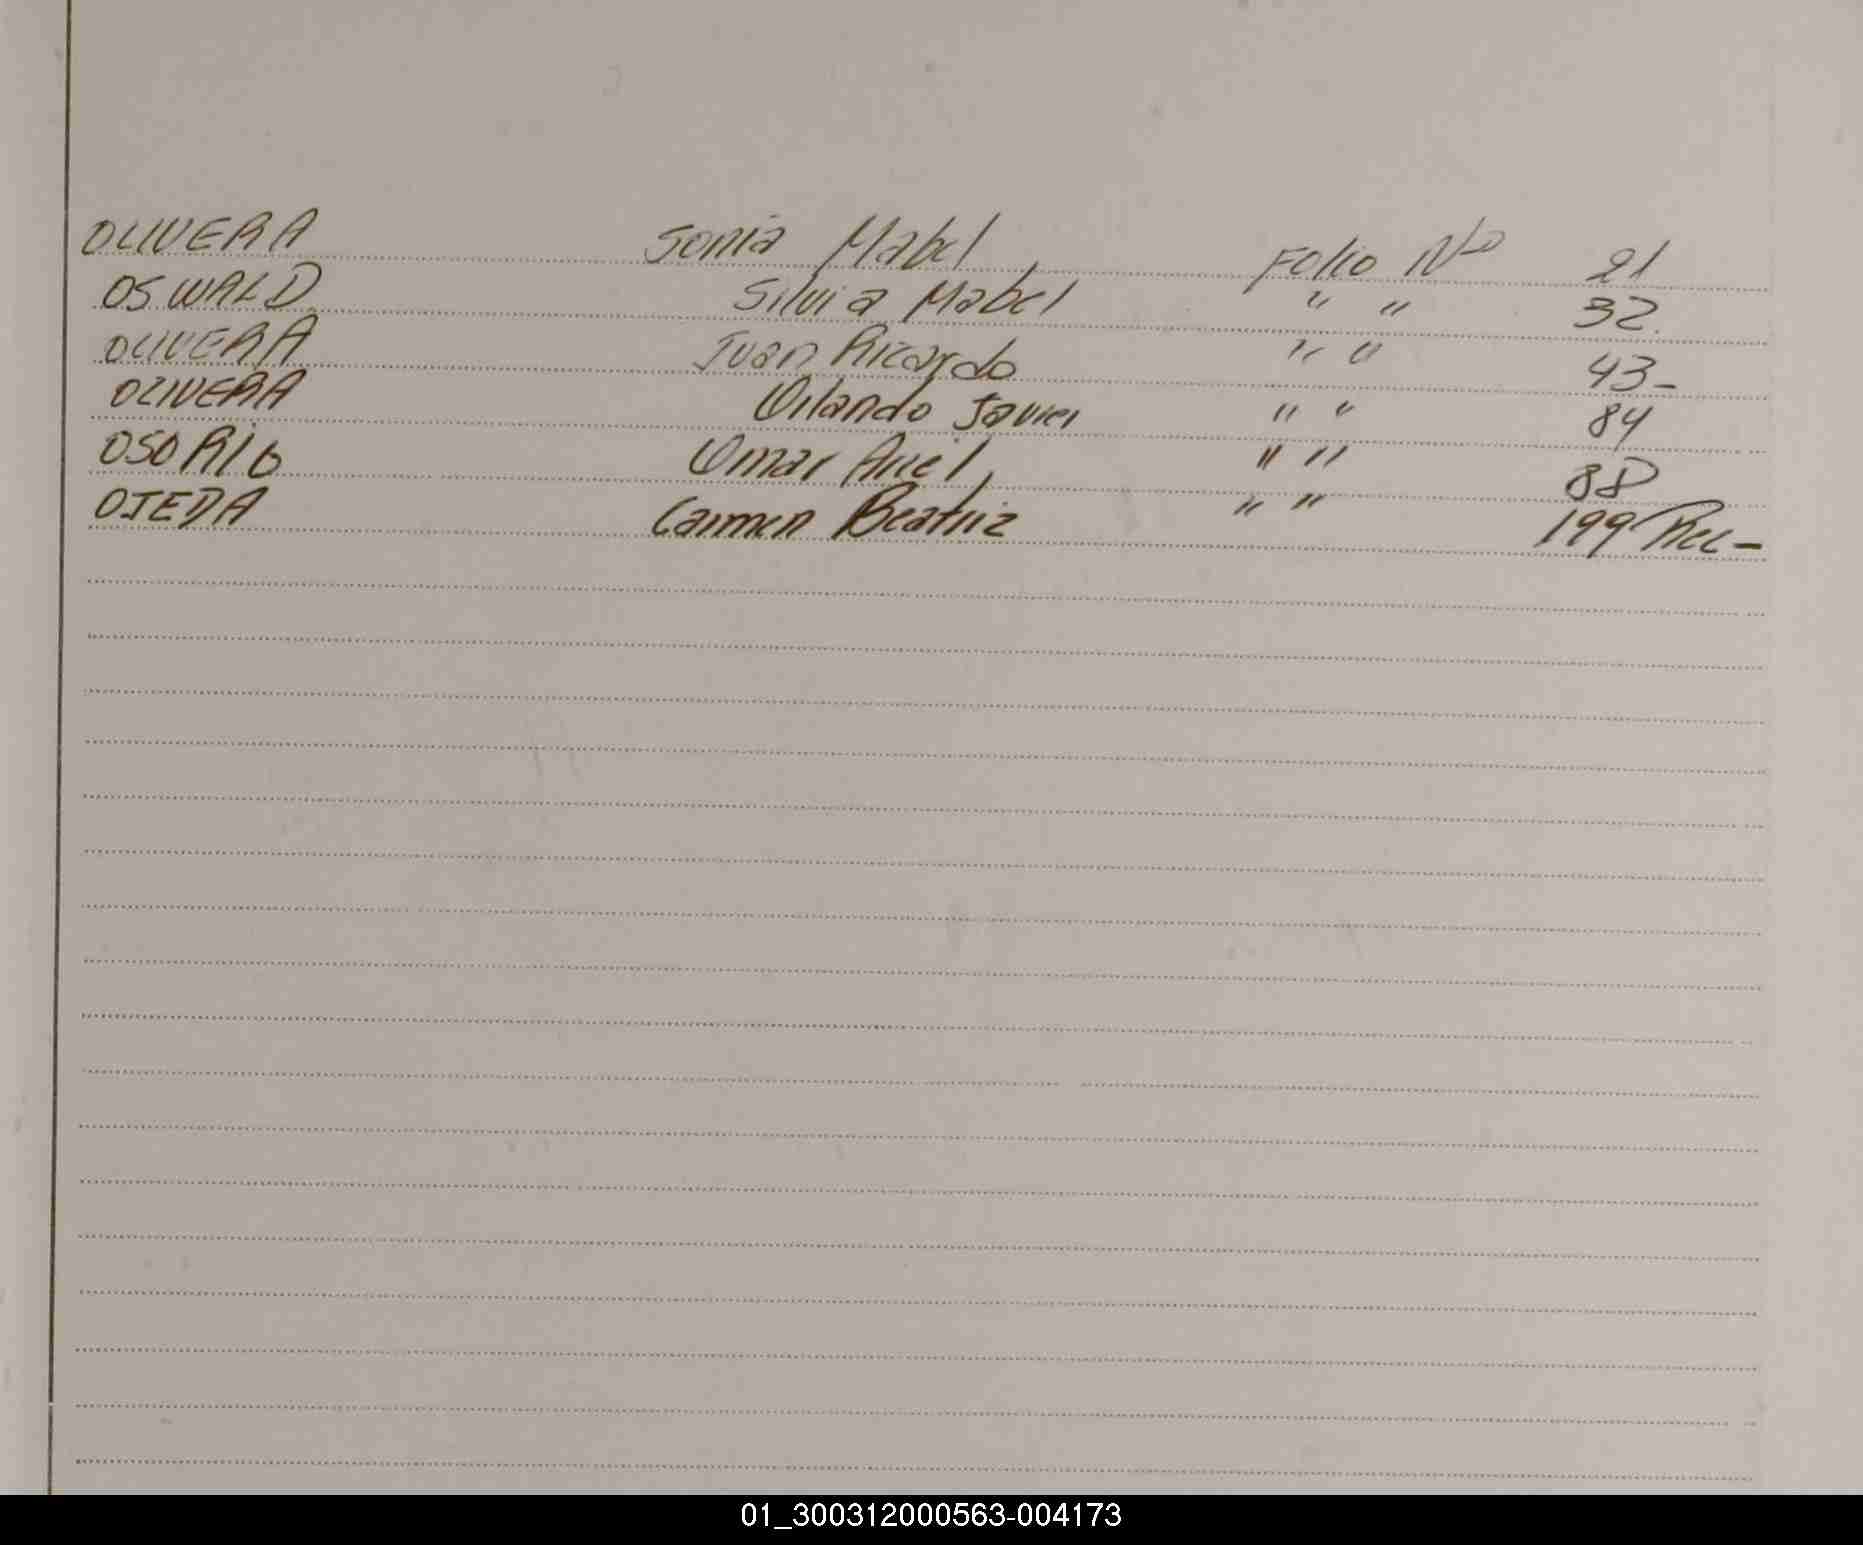 OLIVERA Sonia Mabel Folio Nº 21
OSWALD Silvia Mabel " " 32
OLIVERA Juan Ricardo " " 43-
OLIVERA Orlando Javier " " 84
OSORIO Omar Ariel " " 88
OJEDA Carmen Beatriz " " 199 Rec-
01_300312000563-004173